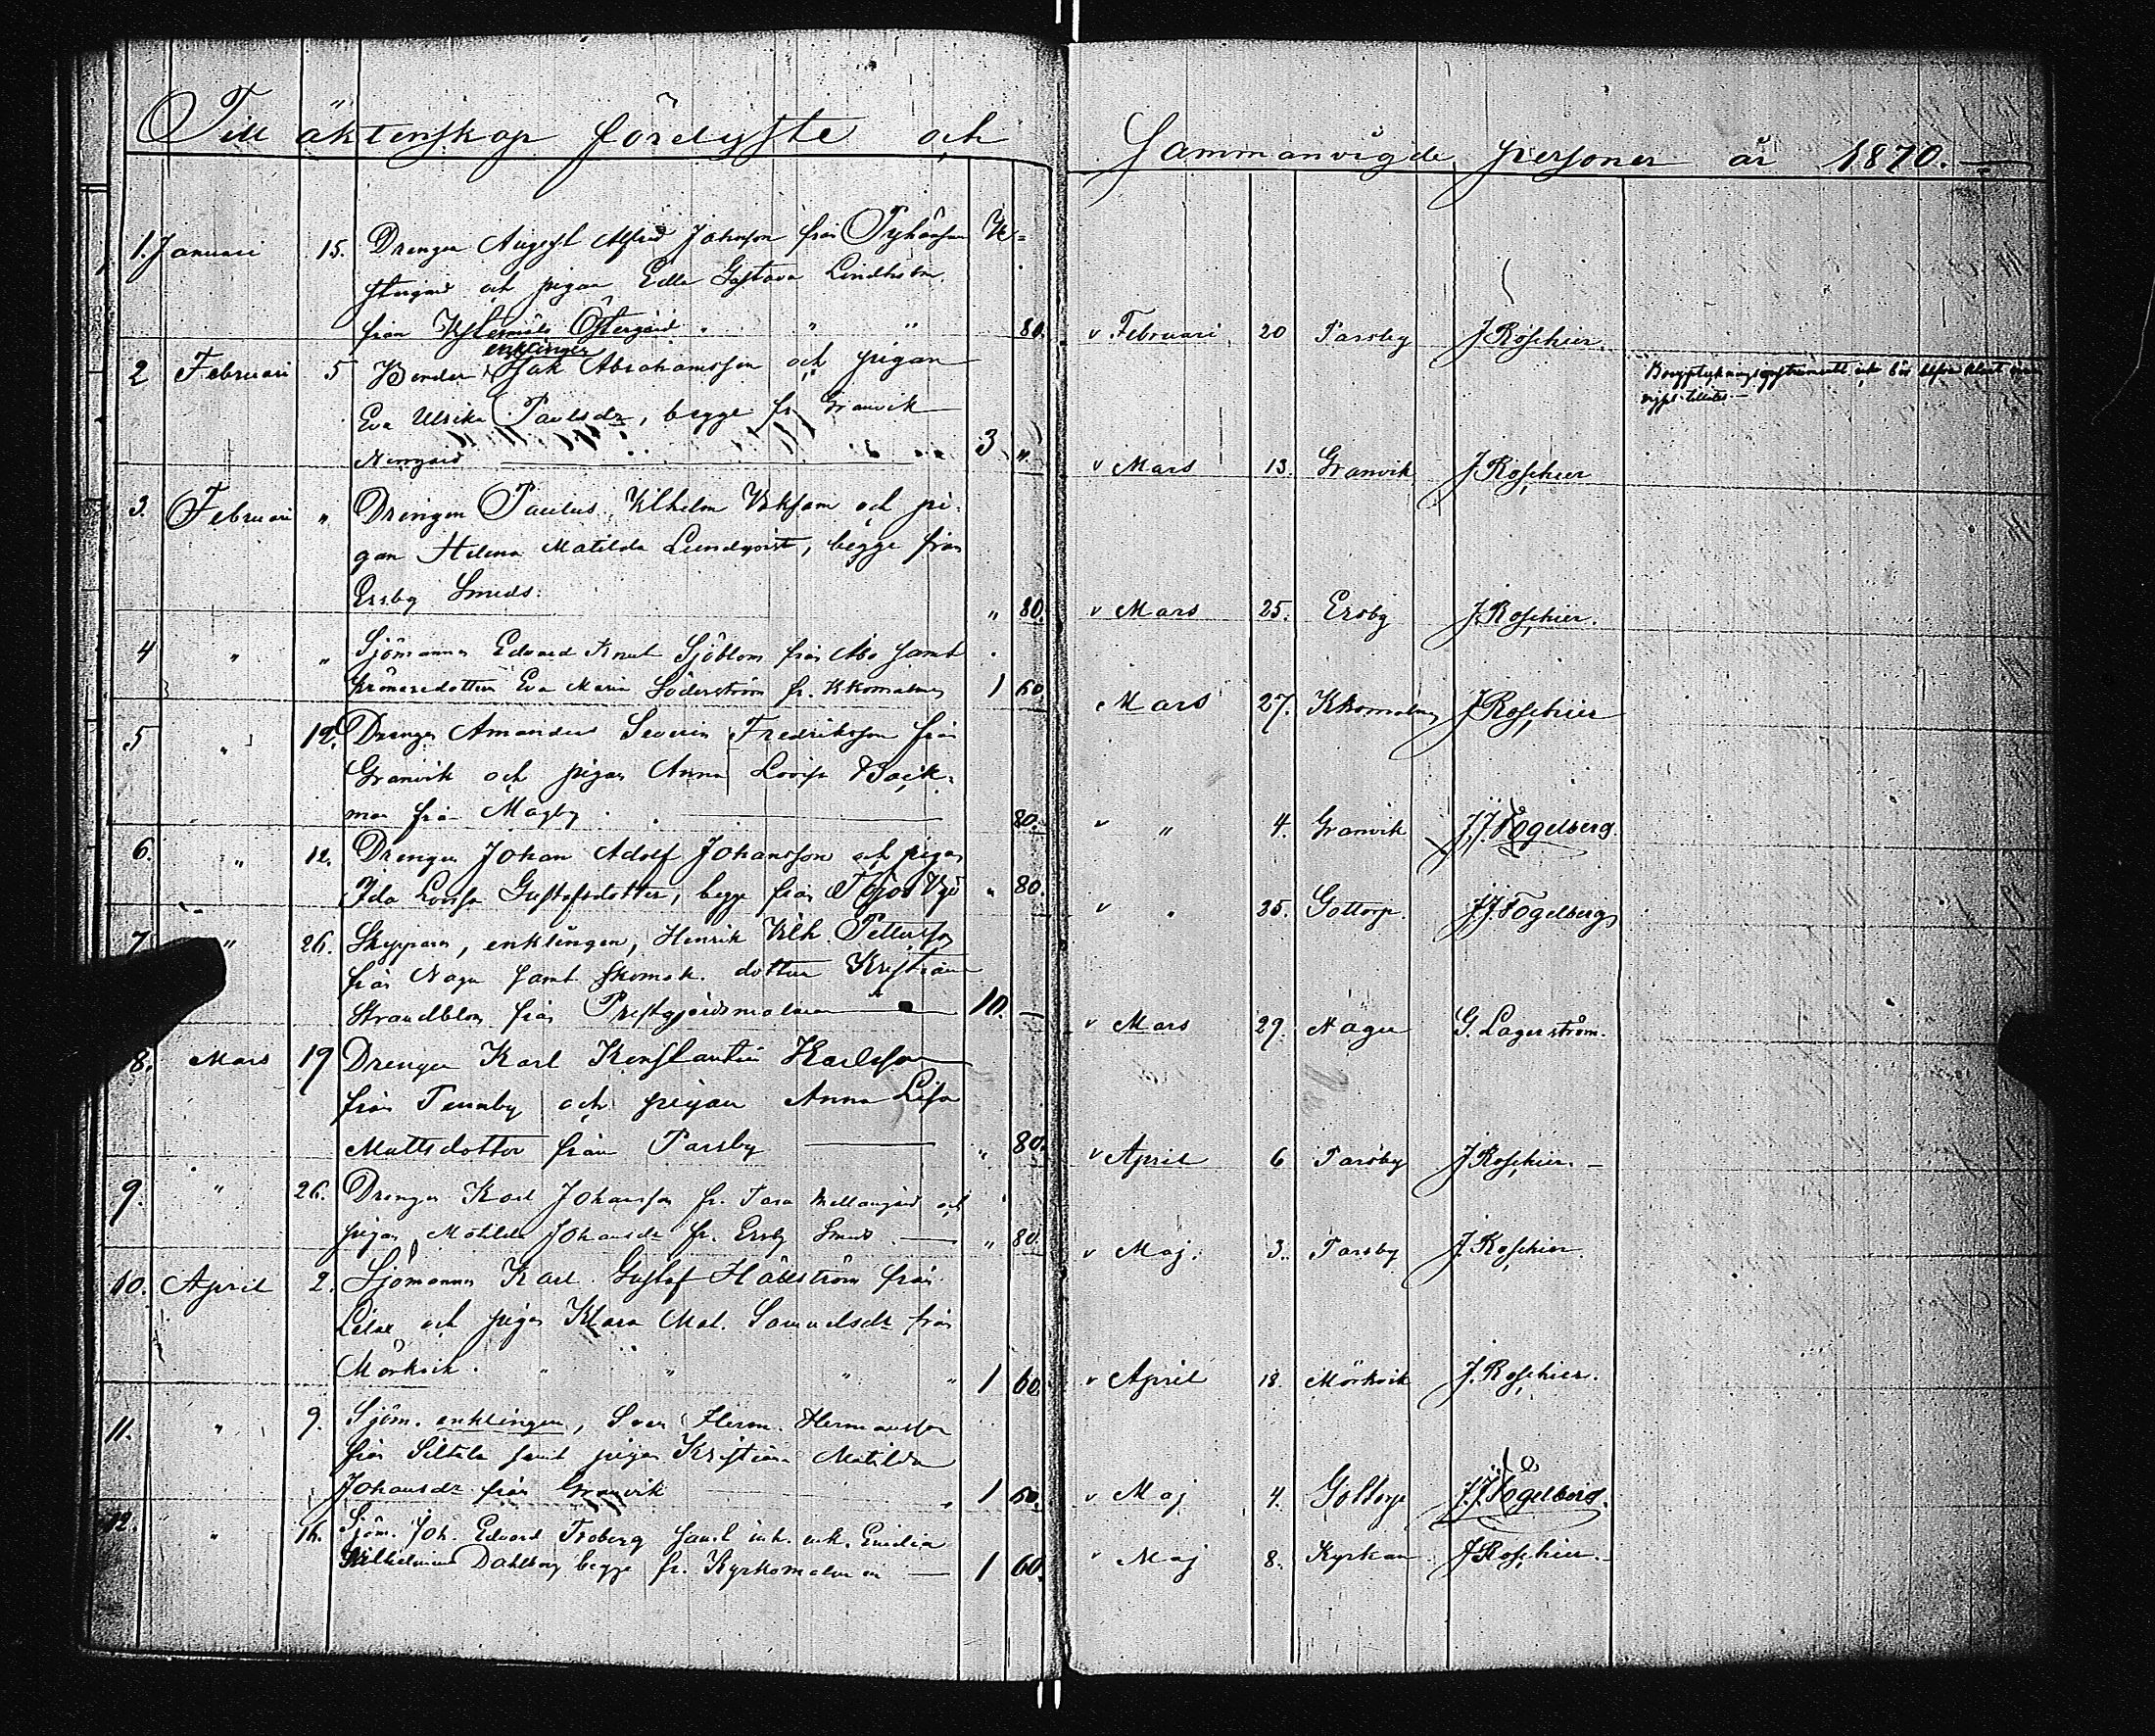 Till äktenskap förelyste och
1. Januari 15. Drengen August Alfred Johnson från Pyhänsun
och pigan Edla Gustava Lindholm
från Östergård " " 80.
2 Februari 5 Bonden enklingen Isak Abrahamsson och pigan
Eva Ulrika Paulsdr, begge fr. Granvik
Norrgård 3 "
3. Februari " Drengen Paulus Vilhelm och pi-
gan Helena Matilda Lundqvist, begge från
Ersby Smeds. " 80.
4 " " Sjömannen Edvard Knut Sjöblom från Åbo samt
Eva Maria Söderström fr. Kkomalmen 1 60
5 " 12. Drengen Amandus Severin Fredriksson från
Granvik och pigan Anna Lovisa Back-
man från Magby. 80.
6. " 12. Drengen Johan Adolf Johansson och pigan
Ida Lovisa Gustafsdotter, begge från " 80.
7 " 26. Skepparen, enklingen, Henrik Vilh. Pettersson
från Nagu samt skomak. dottern Kristina
Strandblom från Prestgårdsmalmen 10 —
8. Mars 19 Drengen Karl Konstantin Karlsson
från Tennby och pigan Anna Lisa
Mattsdotter från Parsby " 80.
9. " 26. Drengen Karl Johansson fr. Mellangård och
pigan Matilda Johansdr fr. Ersby Smeds " 80.
10. April 2. Sjömannen Karl Gustaf Hällström från
och pigan Klara Mat. Samuelsdr från
Mörkvik. " " " " 1 60.
11. " 9. Sjöm. enklingen, Sven Herm. Hermansson
från Siltala samt pigan Kristina Matilda
Johansdr från Granvik " 1 60.
12. " 16. Sjöm. Joh. Edvard Froberg samt inh. enk. Emilia
Vilhelmina Dahlberg begge fr. Kyrkomalmen 1 60.
Sammanvigde personer år 1870.
v Februari 20 Parsby J. Roschier.
v Mars 13. Granvik J. Roschier
v Mars 25. Ersby J. Roschier.
Mars 27. Kkomalmen J. Roschier
v " 4. Granvik J. J. Fogelberg.
v " 25. Gottorp. J. J. Fogelberg
v Mars 29. Nagu G. Lagerström.
v April 6 Parsby J. Roschier.
v Maj. 3. Parsby J. Roschier.
v April 18. Mörkvik J. Roschier.
v Maj 4. Gottorp J. J. Fogelberg.
v Maj 8. Kyrkan J. Roschier.